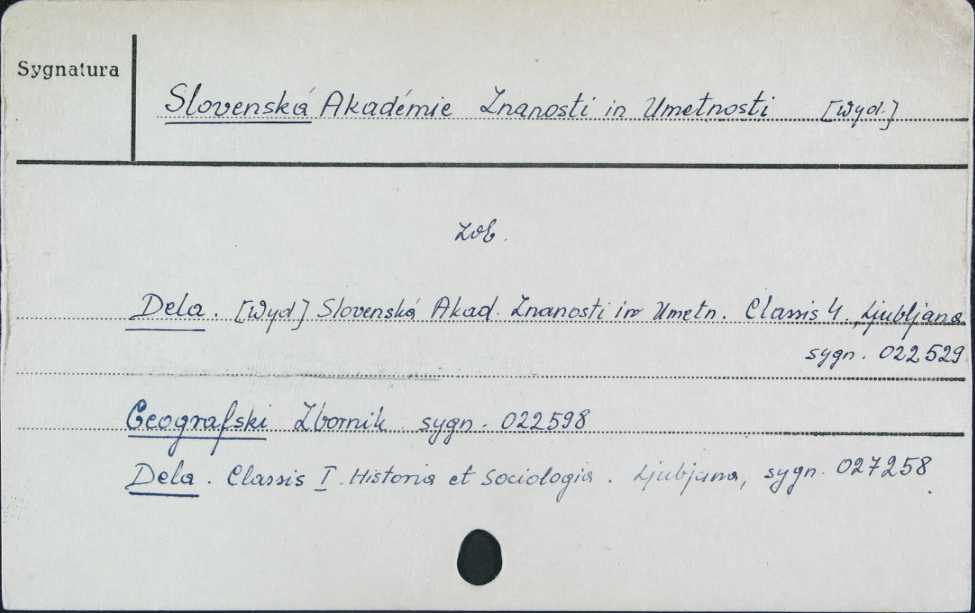 Sygnatura
Slovenská Akadémie Znanosti in Umetnosti [Wyd.]
zob.
Dela. [Wyd] Slovenská Akad. Znanosti in Umetn. Classis 4. Ljubljana
sygn. 022529
Geografski Zbornik sygn. 022598
Dela. Classis I. Historia et Sociologia. Ljubjana, sygn. 027258.